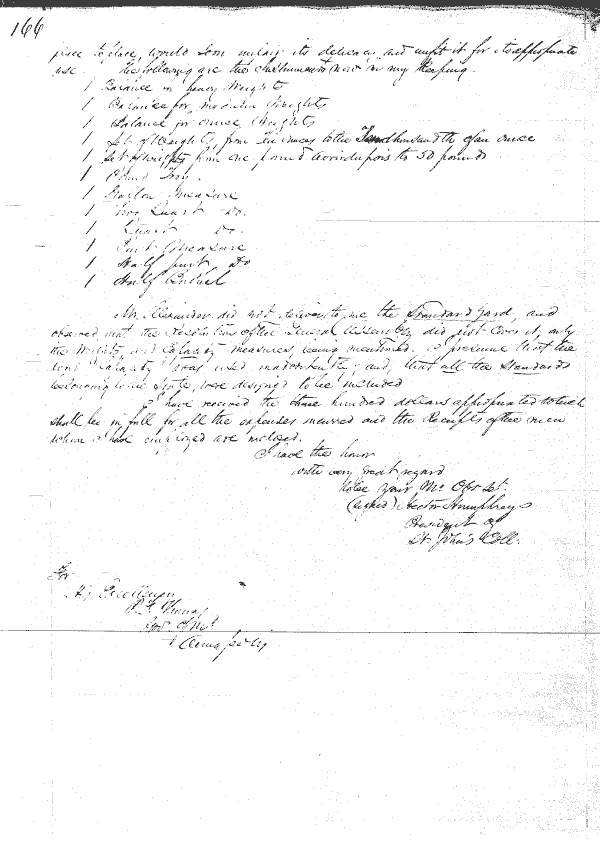 166
place to place, would soon injure its delicacy and unfit it for its appropriate
use. The following are the Instruments now in my keeping.
1 Balance for heavy Weights
1 Balance for medium Weights
1 Balance for ounce Weights
1 Set of Weights, from Ten ounces to the Ten thousandth of an ounce
1 Set of Weights from one pound avoirdupois to 50 pounds
1 Pound Troy.
1 Gallon Measure
1 Two Quart do.
1 Quart do.
1 Pint Measure
1 Half pint do
1 Half Bushel
Mr. Alexander did not deliver to me the Standard Yard, and
observed that the Resolution of the General Assembly did not cover it, only
the Weights, and Capacity measures, being mentioned. I presume that the
word "Capacity" was used inadvertently; and, that all the Standards
belonging to the State, were designed to be included
I have received the three hundred dollars appropriated which
shall be in full for all the expenses incurred and the Receipts of the men
whom I have employed are inclosed.
I have the honor
with very great regard
to be your Mo. Obt. St.
(signed) Hector Humphreys
President of
St. John's Coll.
For
His Excellency
P. F. Thomas
Gov. of Md.
Annapolis